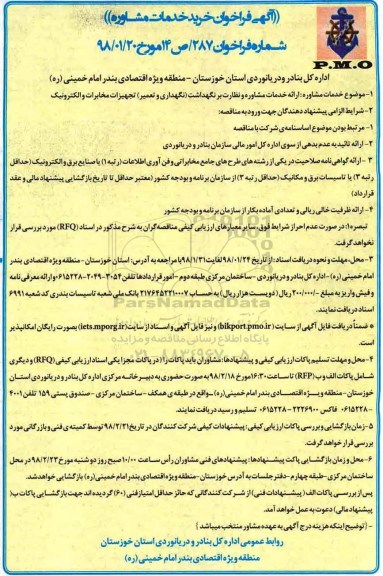 ((آگهی فراخوان خرید خدمات مشاوره))
شماره فراخوان ۲۸۷/ص/۱۴ مورخ ۹۸/۰۱/۲۰
P.M.O
اداره کل بنادر و دریانوردی استان خوزستان - منطقه ویژه اقتصادی بندر امام خمینی (ره)
۱- موضوع خدمات مشاوره : ارائه خدمات مشاوره و نظارت بر نگهداشت (نگهداری و تعمیر) تجهیزات مخابرات و الکترونیک
۲- شرایط الزامی پیشنهاد دهندگان جهت ورود به مناقصه:
۱- مرتبط بودن موضوع اساسنامه ی شرکت با مناقصه
۲- ارائه تائیدیه عدم بدهی از سوی اداره کل امور مالی سازمان بنادر و دریانوردی
۳- ارائه گواهی نامه صلاحیت در یکی از رشته های طرح های جامع مخابراتی و فن آوری اطلاعات (رتبه ۱) یا صنایع برق و الکترونیک (حداقل
رتبه ۳) یا تاسیسات برق و مکانیک (حداقل رتبه ۳) از سازمان برنامه و بودجه کشور (معتبر حداقل تا تاریخ بازگشایی پیشنهاد مالی و عقد
قرارداد)
۴- ارائه ظرفیت خالی ریالی و تعدادی آماده بکار از سازمان برنامه و بودجه کشور
تبصره۱: در صورت عدم احراز شرایط فوق، سایر معیارهای ارزیابی کیفی مناقصه گران به شرح مذکور در اسناد (RFQ) مورد بررسی قرار
نخواهد گرفت.
۳- محل، مهلت و نحوه دریافت اسناد: از تاریخ ۹۸/۰۱/۲۴ لغایت ۹۸/۱/۳۱ با مراجعه به آدرس: استان خوزستان - منطقه ویژه اقتصادی بندر
امام خمینی (ره) - اداره کل بنادر و دریانوردی - ساختمان مرکزی طبقه دوم - امور قراردادها تلفن ۳۰۴۹-۰۶۱۵۲۲۸۲۰۵۴ و ارائه معرفی نامه
و فیش واریز به مبلغ ۲۰۰/۰۰۰/- ریال (دویست هزار ریال) به حساب ۲۱۷۶۴۵۲۲۱۰۰۰۷ بانک ملی شعبه تاسیسات بندری کد شعبه ۶۹۹۱
اسناد دریافت نمایند.
* ضمناً دریافت فایل آگهی از سایت (bikport.pmo.ir) و نیز فایل آگهی و اسناد از سایت (iets.mporg.ir) بصورت رایگان امکانپذیر
است.
۴- محل و مهلت تسلیم پاکات ارزیابی کیفی و پیشنهادها: مشاوران باید پاکات را (در پاکات مجزا یکی اسناد ارزیابی کیفی (RFQ) و دیگری
شامل پاکات الف و ب (RFP) تا ساعت ۱۶:۳۰ مورخ ۹۸/۲/۱۸ به صورت حضوری به دبیرخانه مرکزی اداره کل بنادر و دریانوردی استان
خوزستان - منطقه ویژه اقتصادی بندر امام خمینی (ره) - واقع در طبقه ی همکف - ساختمان مرکزی - صندوق پستی ۱۵۹ تلفن ۴۰۰۱
- ۰۶۱۵۲۲۸ فاکس ۲۲۲۶۹۰۰ - ۰۶۱۵۲۲۸ تسلیم و رسید دریافت نمایند.
۵- زمان بازگشایی و بررسی پاکات ارزیابی کیفی: پیشنهادات کیفی شرکت کنندگان در تاریخ ۹۸/۲/۲۱ توسط کمیته ی فنی و بازرگانی مورد
بررسی قرار خواهد گرفت.
۶- محل و زمان بازگشایی پاکت پیشنهادها: پیشنهادهای فنی مشاوران رأس ساعت ۱۰/۰۰ صبح روز دوشنبه مورخ ۹۸/۲/۲۳ در محل
ساختمان مرکزی - طبقه چهارم - دفتر جلسات به آدرس استان خوزستان - منطقه ویژه اقتصادی بندر امام خمینی (ره) بازگشایی خواهد شد.
پس از بررسی پاکات الف (پیشنهادات فنی) از شرکت کنندگانی که حائز حداقل امتیاز فنی (۶۰) گردیده اند جهت بازگشایی پاکات ب (
پیشنهاد مالی) دعوت به عمل خواهد آمد.
- (توضیح اینکه هزینه درج آگهی به عهده مشاور منتخب میباشد)
روابط عمومی اداره کل بنادر و دریانوردی استان خوزستان
منطقه ویژه اقتصادی بندر امام خمینی (ره)